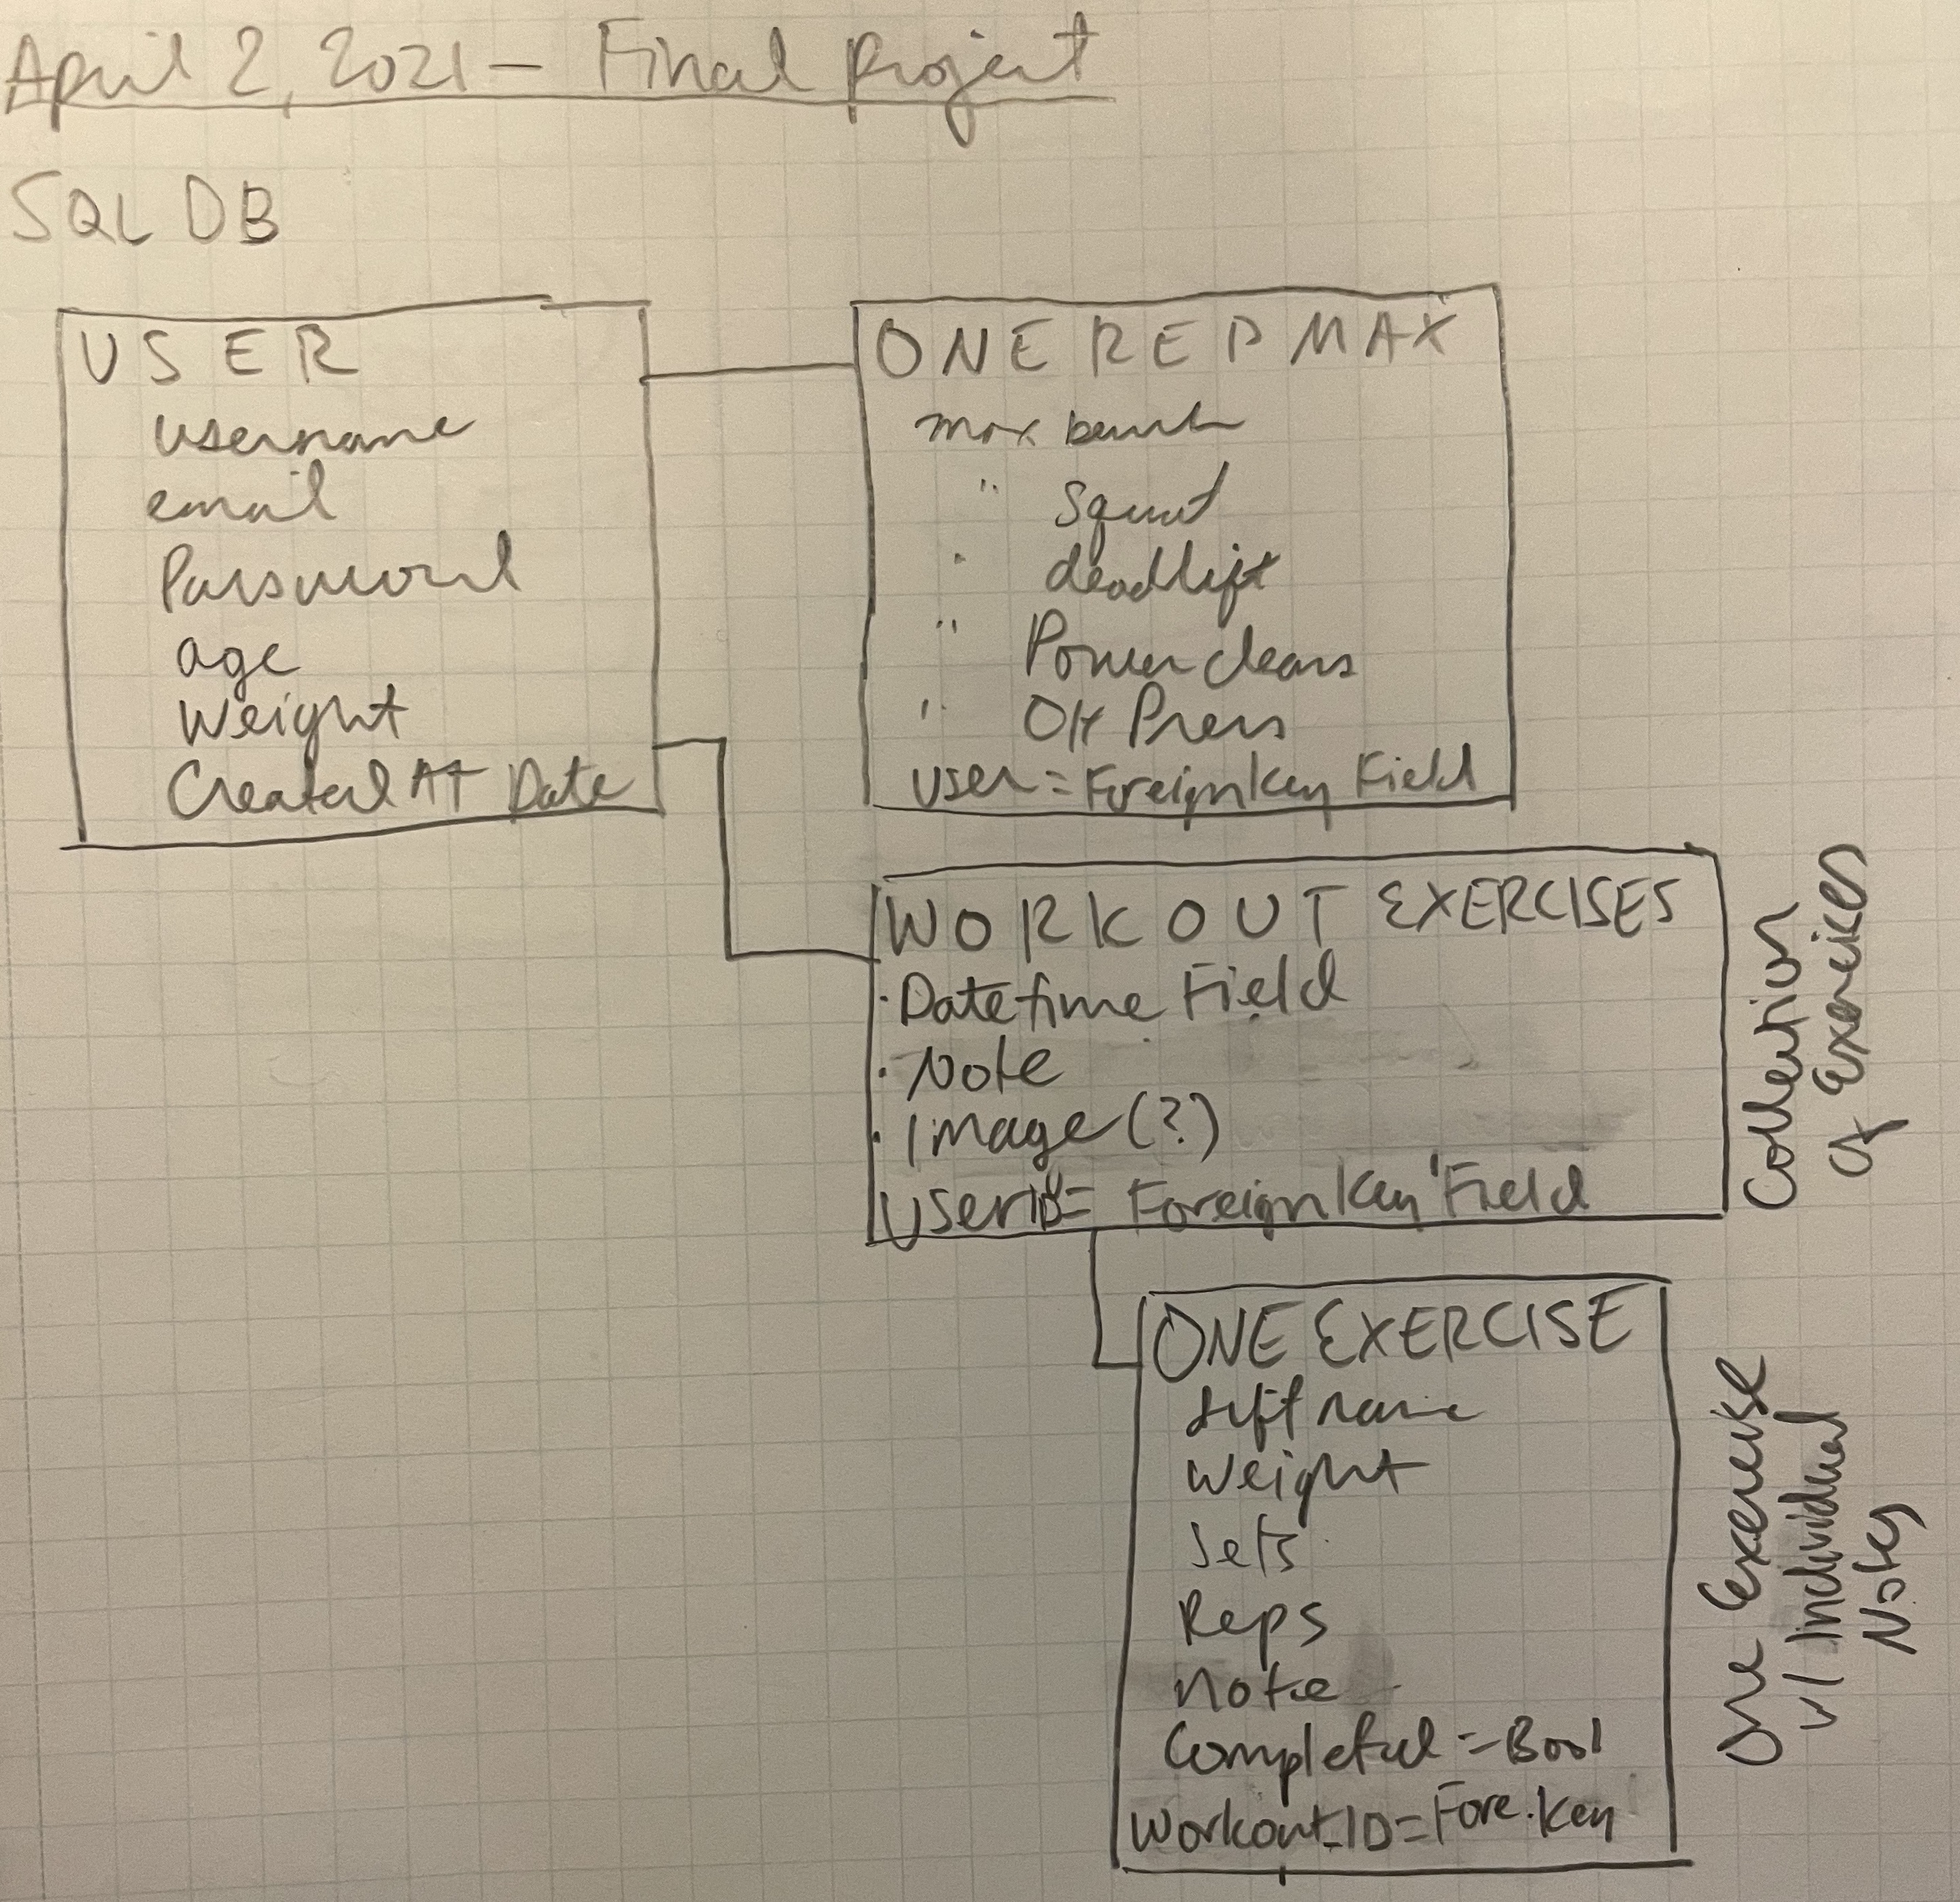 April 2, 2021 - Final Project
SQL DB
USER
username
email
Password
age
Weight
Created AT Date
ONE REP MAX
max bench
" Squat
" deadlift
" Power cleans
" OH Press
user = Foreign Key Field
WORKOUT EXERCISES
· Datetime Field
· Note
· Image (?)
UserID = Foreign Key Field
Collection
of Exercises
ONE EXERCISE
Lift name
Weight
Sets
Reps
Note
Completed = Bool
Workout_ID = Fore. Key
One Exercise
w/ Individual
Notes